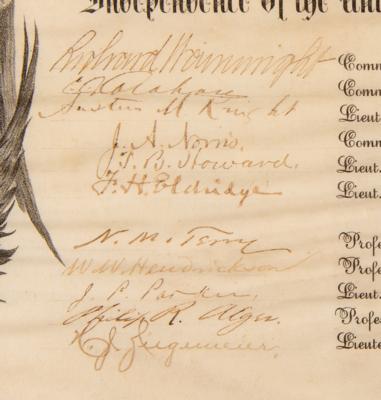 Independence of the Uni
Richard Wainwright Comm
E. K. Comm
Austin M Knight Lieut
J. A. Norris. Comm
T. B. Howard. Lieut.
F. H. Eldridge Lieut.
N. M. Terry Profe
W. W. Hendrickson Profe
J. P. Parker, Lieut.
Philip R. Alger. Profe
H. J. Ziegemeier. Lieute